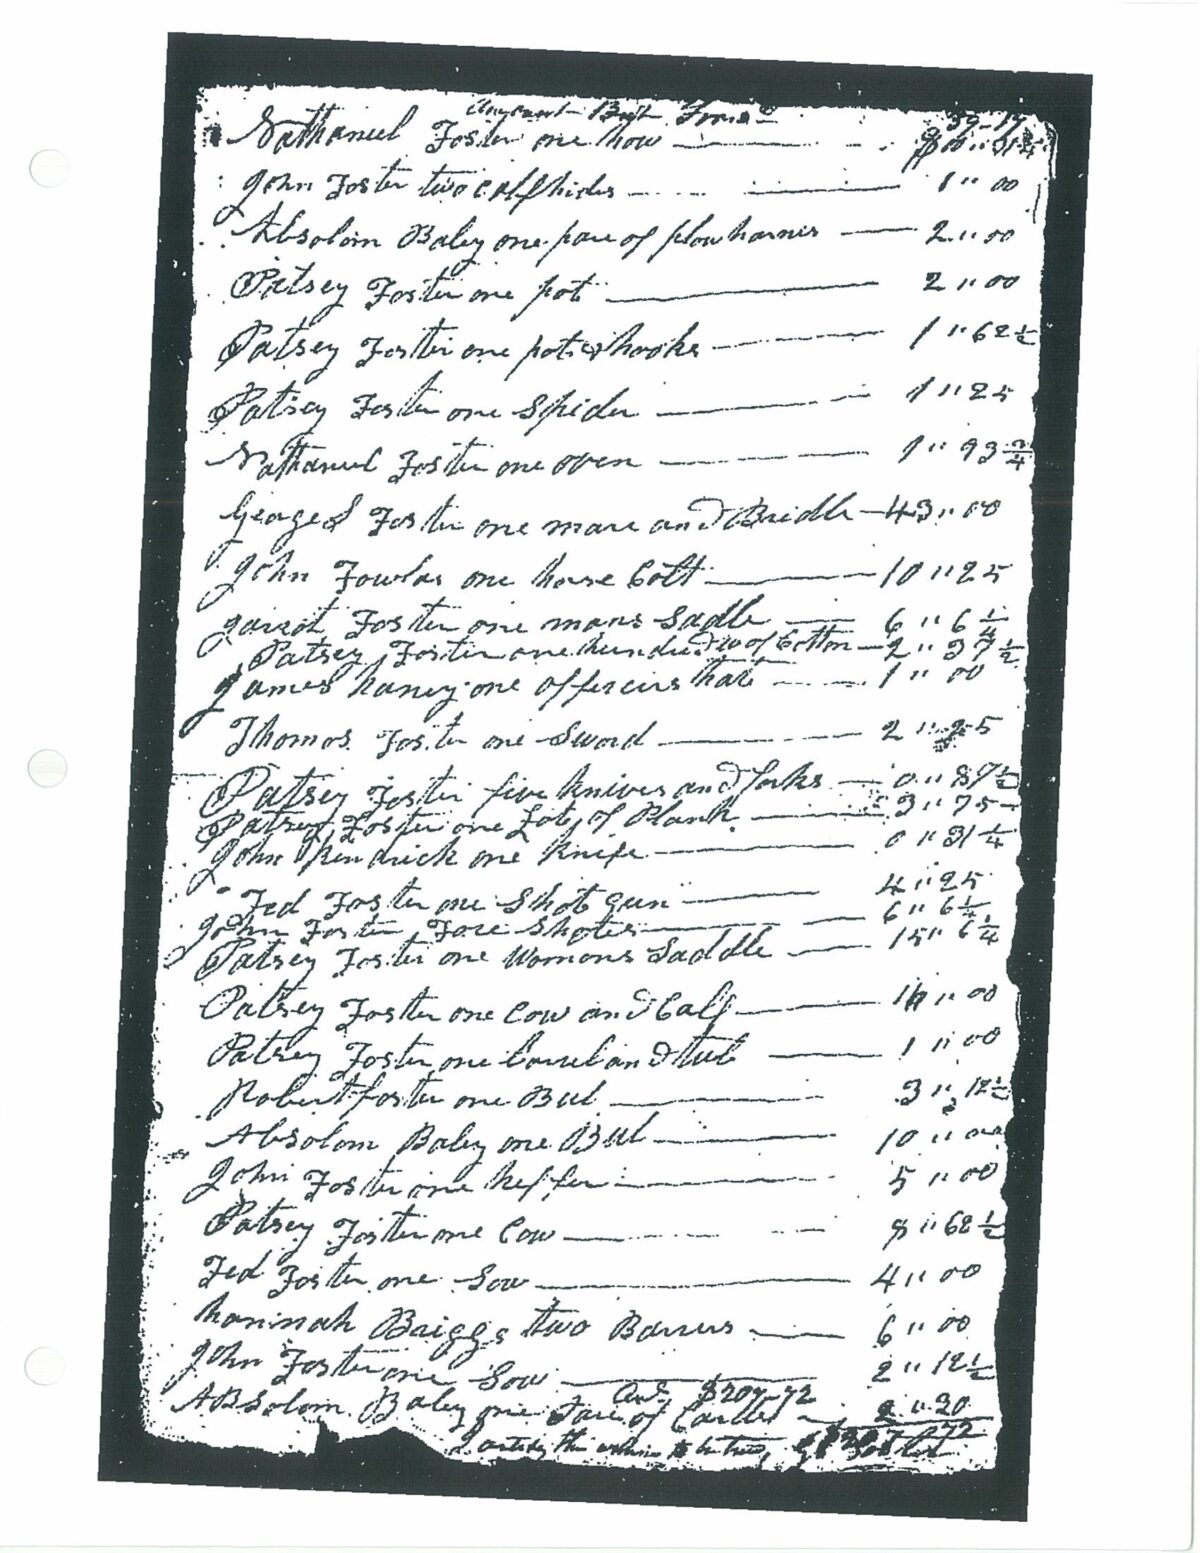 Amount Bt From 39-19
Nathaniel Foster one how $0"31¼
John Foster two calf hides 1"00
Absolom Baley one pare of plow harnes 2"00
Patsey Foster one pot 2"00
Patsey Foster one pot & hooks 1"62½
Patsey Foster one Spider 1"25
Nathaniel Foster one oven 1"93¾
George S Foster one mare and Bridle 43"00
John Fowlar one horse Colt 10"25
jarrot Foster one mans Sadle 6"6¼
Patsey Foster one hundred w of Cotton 2"37½
James haney one offercirs hat 1"00
Thomas Foster one Sword 2"25
Patsey Foster five knives and forks 0"87½
Patsey Foster one Lot of Plank 3"75
John Kendrick one Knife 0"31¼
Fed Foster one Shot gun 4"25
John Foster Fore Shotes 6"6¼
Patsey Foster one Womons Saddle 15"6¼
Patsey Foster one Cow and Calf "00
Patsey Foster one barrel and tub 1"00
Robert foster one Bul 3"12½
Absolom Baley one Bul 10"00
John Foster one heffer 5"00
Patsey Foster one Cow 8"62½
Fed Foster one Sow 4"00
hannah Briggs two Barrows 6"00
John Foster one Sow 2"12½
Amt $207-72
ABsolom Baley one Pare of Cardes 2"20
I certify the within to be true, 72